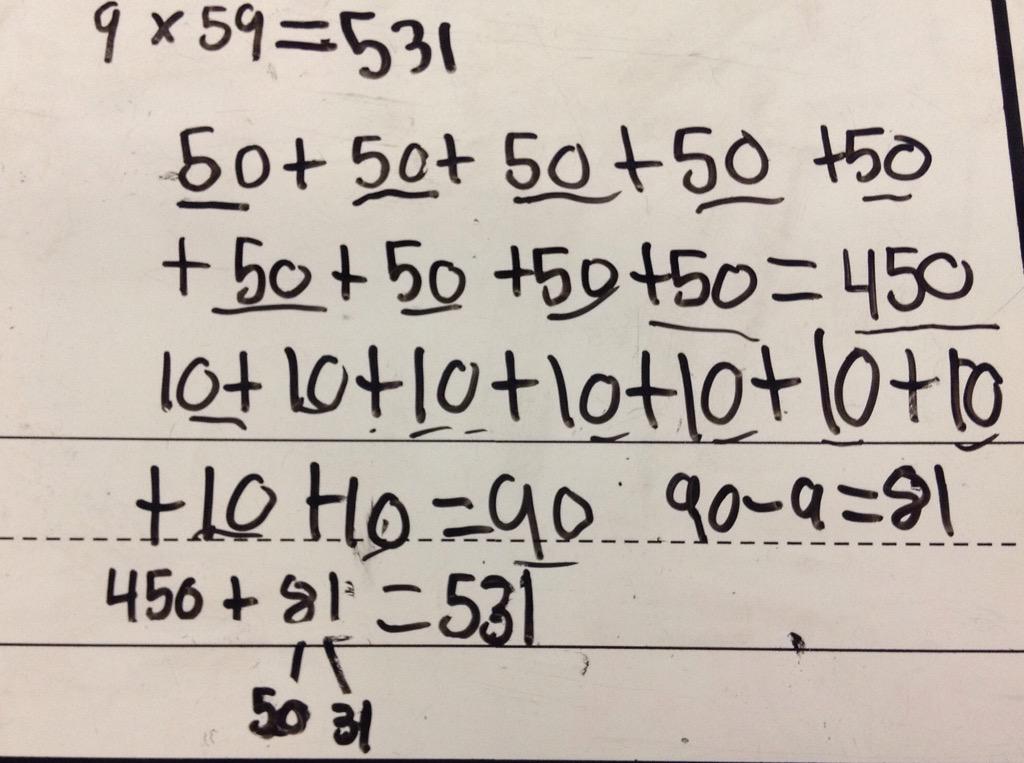 9 x 59 = 531
50 + 50 + 50 + 50 + 50
+ 50 + 50 + 50 + 50 = 450
10 + 10 + 10 + 10 + 10 + 10 + 10
+ 10 + 10 = 90 90 - 9 = 81
450 + 81 = 531
50 31